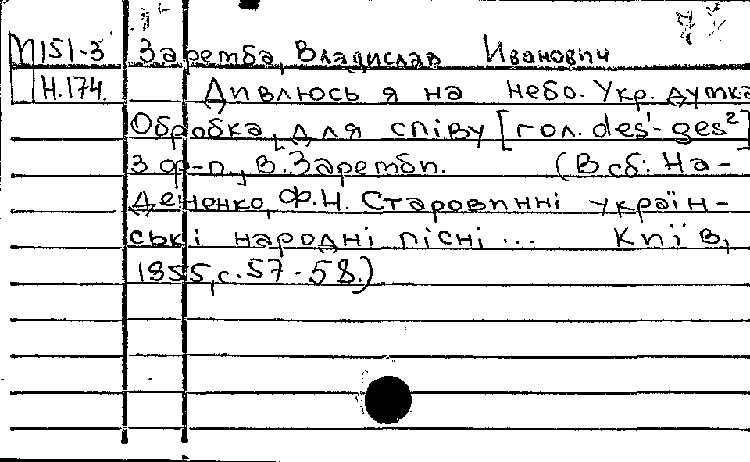 М151-3 Заремба, Владислав Иванович
Н.174. Дивлюсь я на небо. Укр. думка
Обробка, для співу [гол. des'-ges²]
з ф-п., В. Заремби. (В сб: На-
дененко, Ф.Н. Старовинні україн-
ські народні пісні ... Київ,
1955, с. 57-58.)